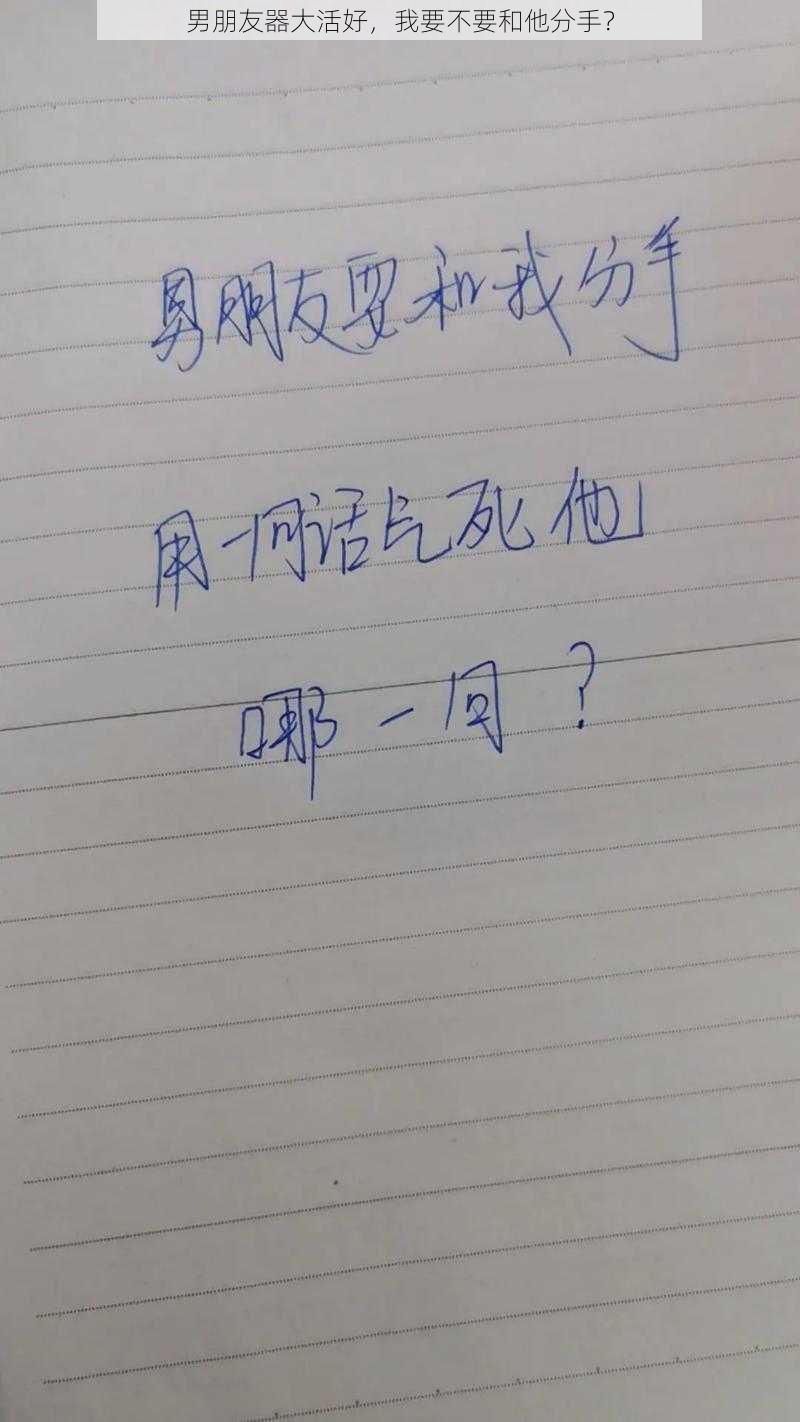 男朋友器大活好，我要不要和他分手？
男朋友要和我分手
用一句话气死他
哪一句？